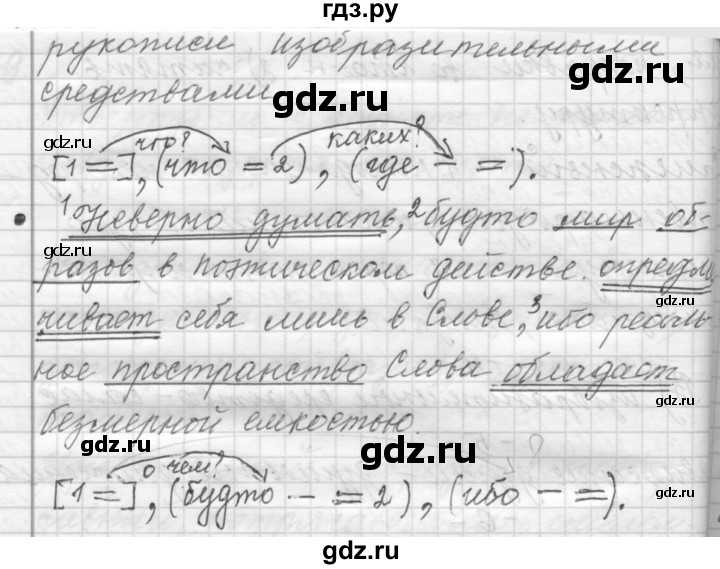 гдз.ру
рукописи, изобразительными
средствами.
gdz.ru
gdz.ru
что? каких?
gdz.ru
gdz.ru
[1 =], (что = 2), (где – =).
1 Неверно думать, 2 будто мир об-
gdz.ru
разов в поэтическом действе определ
gdz.ru
чивает себя лишь в Слове, 3 ибо реаль-
gdz.ru
gdz.ru
ное пространство Слова обладает
gdz.ru
безмерной емкостью.
gdz.ru
gdz.ru
о чем?
[1 =], (будто – = 2), (ибо – =).
gdz.ru
gdz.ru
gdz.ru